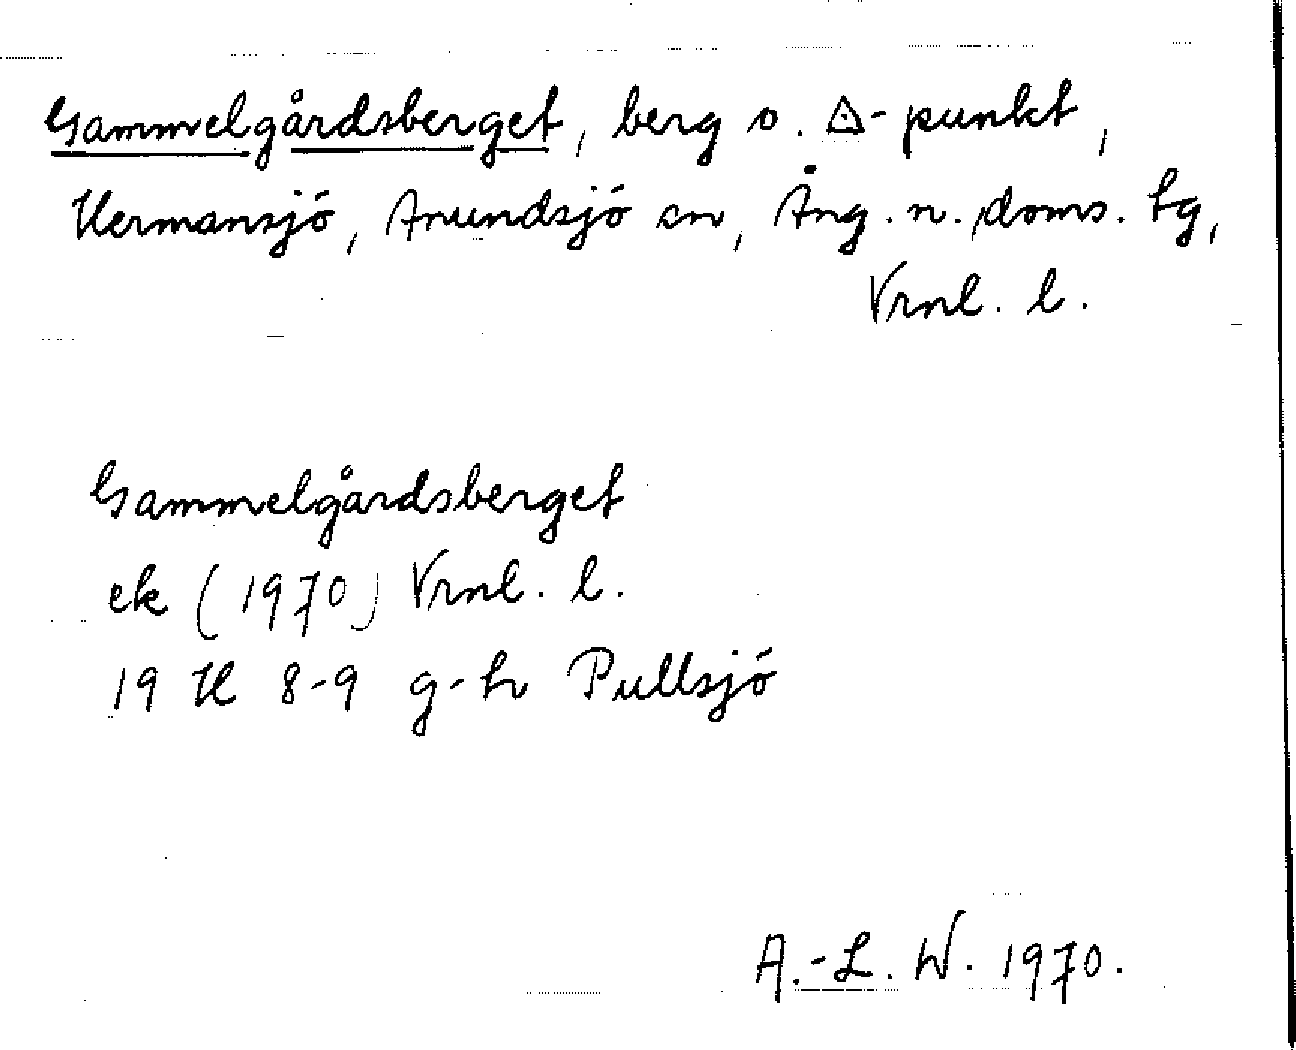 Gammelgårdsberget, berg o. △-punkt,
Hermansjö, Anundsjö sn, Ång. n. doms. tg,
Vrnl. l.
Gammelgårdsberget
ek (1970) Vrnl. l.
19 H 8-9 g-h Pullsjö
A.-L. W. 1970.